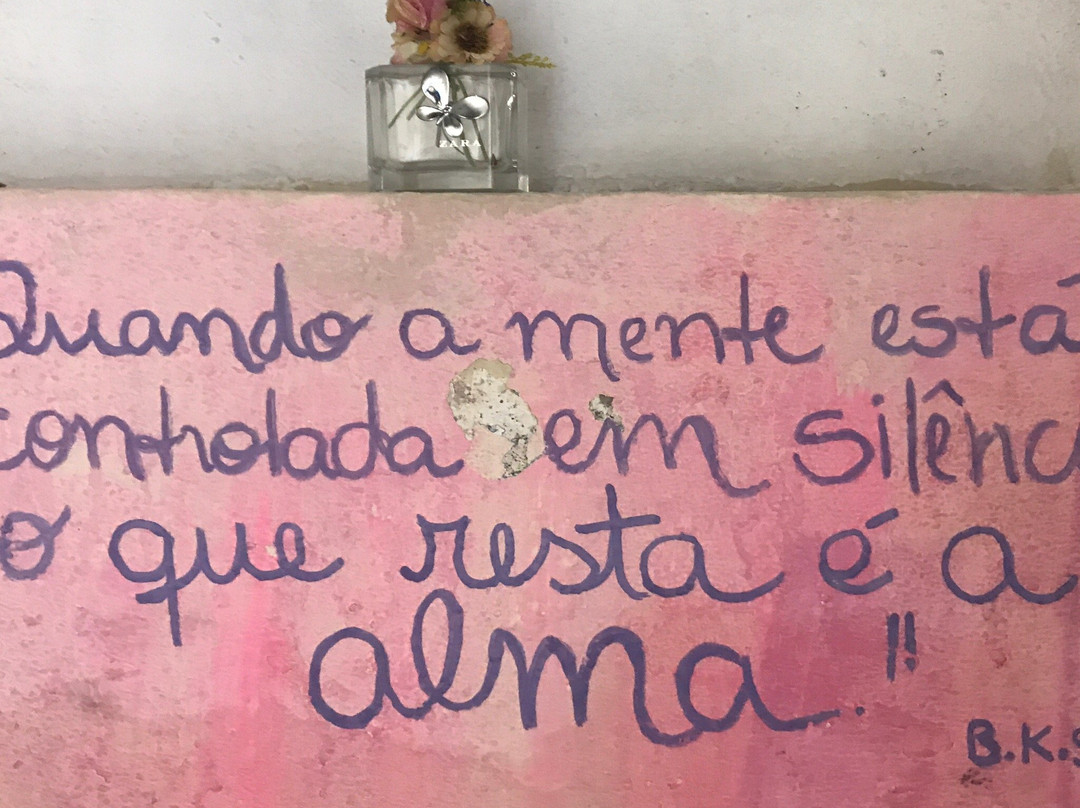 ZARA
Quando a mente está
controlada em silênc
o que resta é a
alma."
B.K.S